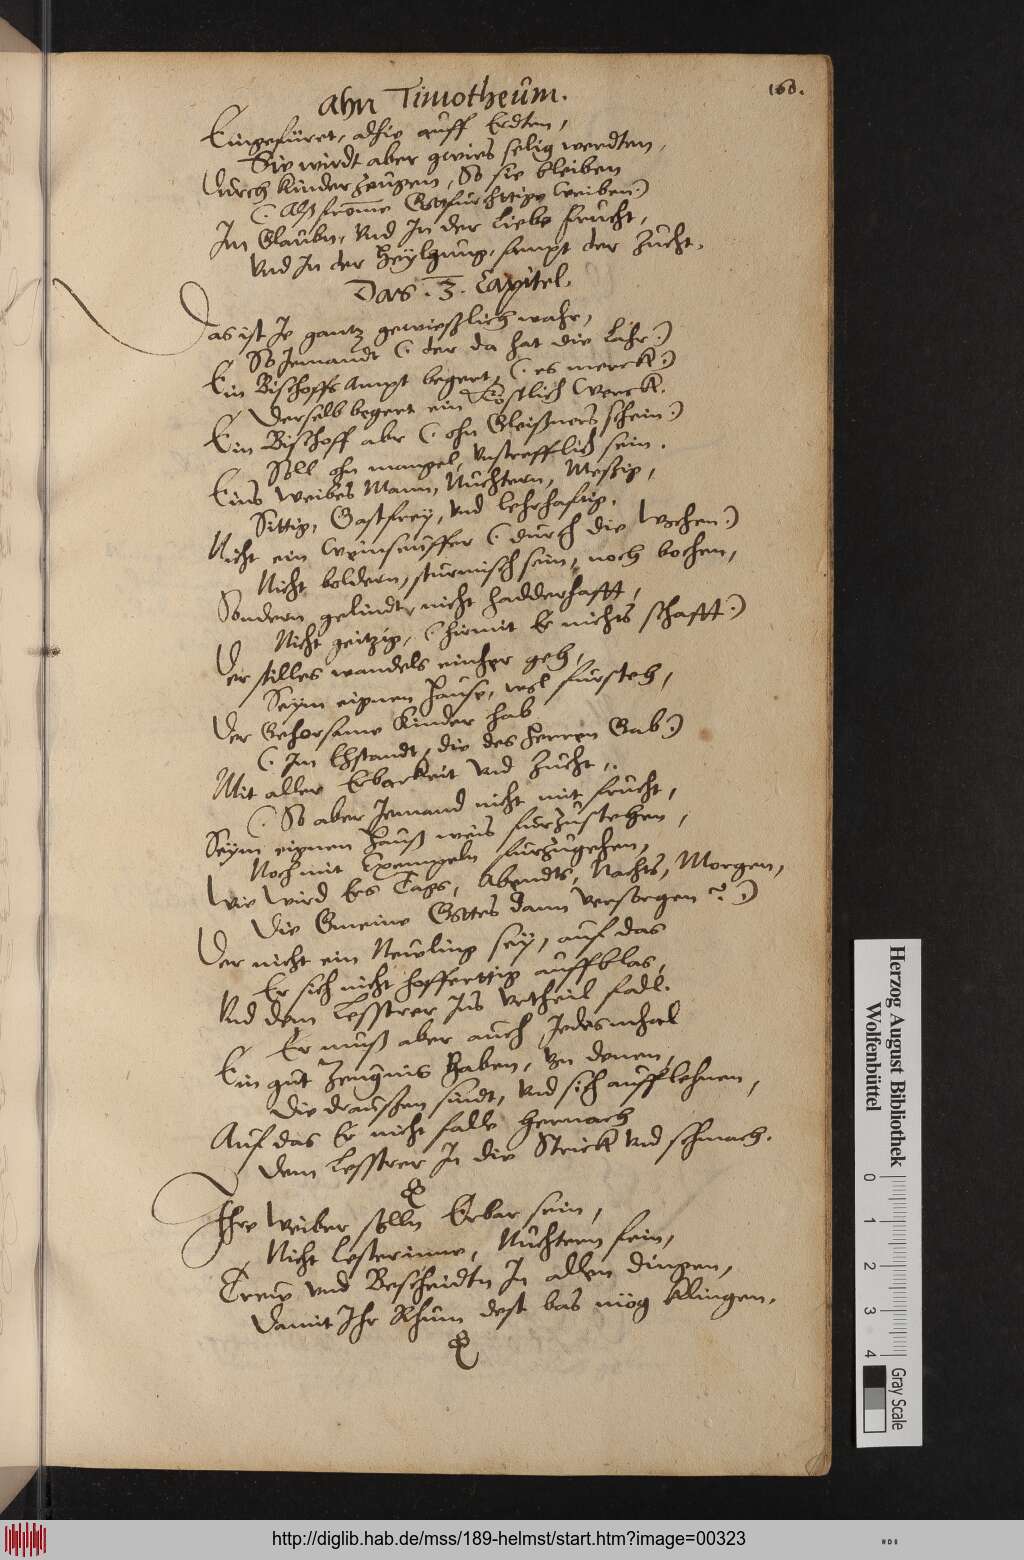 168.
ahn Timotheum.
Eingefüret, alhie auff Erdten,
Sie wirdt aber gwies selig werdten,
Durch Kinder Zeugen, So sie bleiben
(. Alß frome Gottfurchttige Weiben.)
Im Glaubn, Vnd In der Liebe frucht,
Vnd In der Heylgung, sampt der Zucht.
Das .3. Capitel.
Das ist Je gantz gewießlich wahr,
So Jemandt (. der da hat die Lähr.)
Ein Bischoffs Ampt begert, (. es merck.)
Derselb begert ein Köstlich Werck.
Ein Bischoff abr (. ohn Gleißners schein.)
Soll ohn mangel, Vnstrefflich sein.
Eins Weibes Mann, Nuchtern, Messig,
Sittig, Gastfrey, Vnd lehrhafftig.
Nicht ein Weinseuffer (. durch die Wochen.)
Nicht boldern, sturmisch sein, noch bochen,
Sondern gelindt, nicht hadderhafft,
Nicht geitzig, (. hirmit Er nichts schafft.)
Der stilles wandels einher geh,
Seym eignen Hause, wol fursteh,
Der Gehorsame Kinder hab
(. Im Ehstandt, die des Herren Gab.)
Mit aller Erbarkeit Vnd Zucht,.
(. So aber Jemand nicht mit frucht,
Seym eignen Hauß weis furzustehen,
Noch mit Exempeln furzugehen,
Wie Wird Ers Tags, Abendts, Nachts, Morgen,
Die Gmeine Gottes dann Versorgen?.)
Der nicht ein Neuling sey, auf das
Er sich nicht hoffertig auffblas,
Vnd dem Lesstrer Ins Vrtheil fall.
Er muß aber auch Jedesmhal
Ein gut Zeugnis Haben, Von denen,
Die draussen sindt, Vnd sich aufflehnen,
Auf das Er nicht falle hernach
Dem Lesstrer In die Strick Vnd schmach.
Ihre Weiber solln Erbar sein,
Nicht Lesterinne, Nuchtern fein,
Treue Vnd Bescheidtn In allen dingen,
Damit Ihr Rhum dest bas müg klingen.
Herzog August Bibliothek
Wolfenbüttel
0 1 2 3 4
Gray Scale
http://diglib.hab.de/mss/189-helmst/start.htm?image=00323